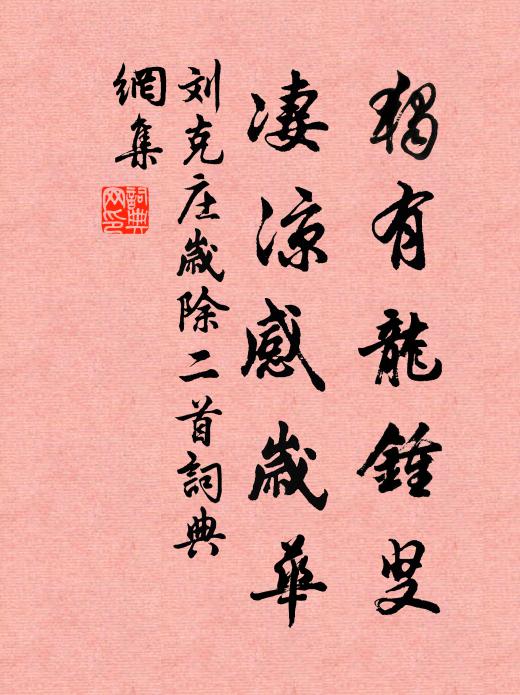 獨有龍鍾叟
凄涼感歲華
刘克庄歲除二首詞典
網集
詞典網印